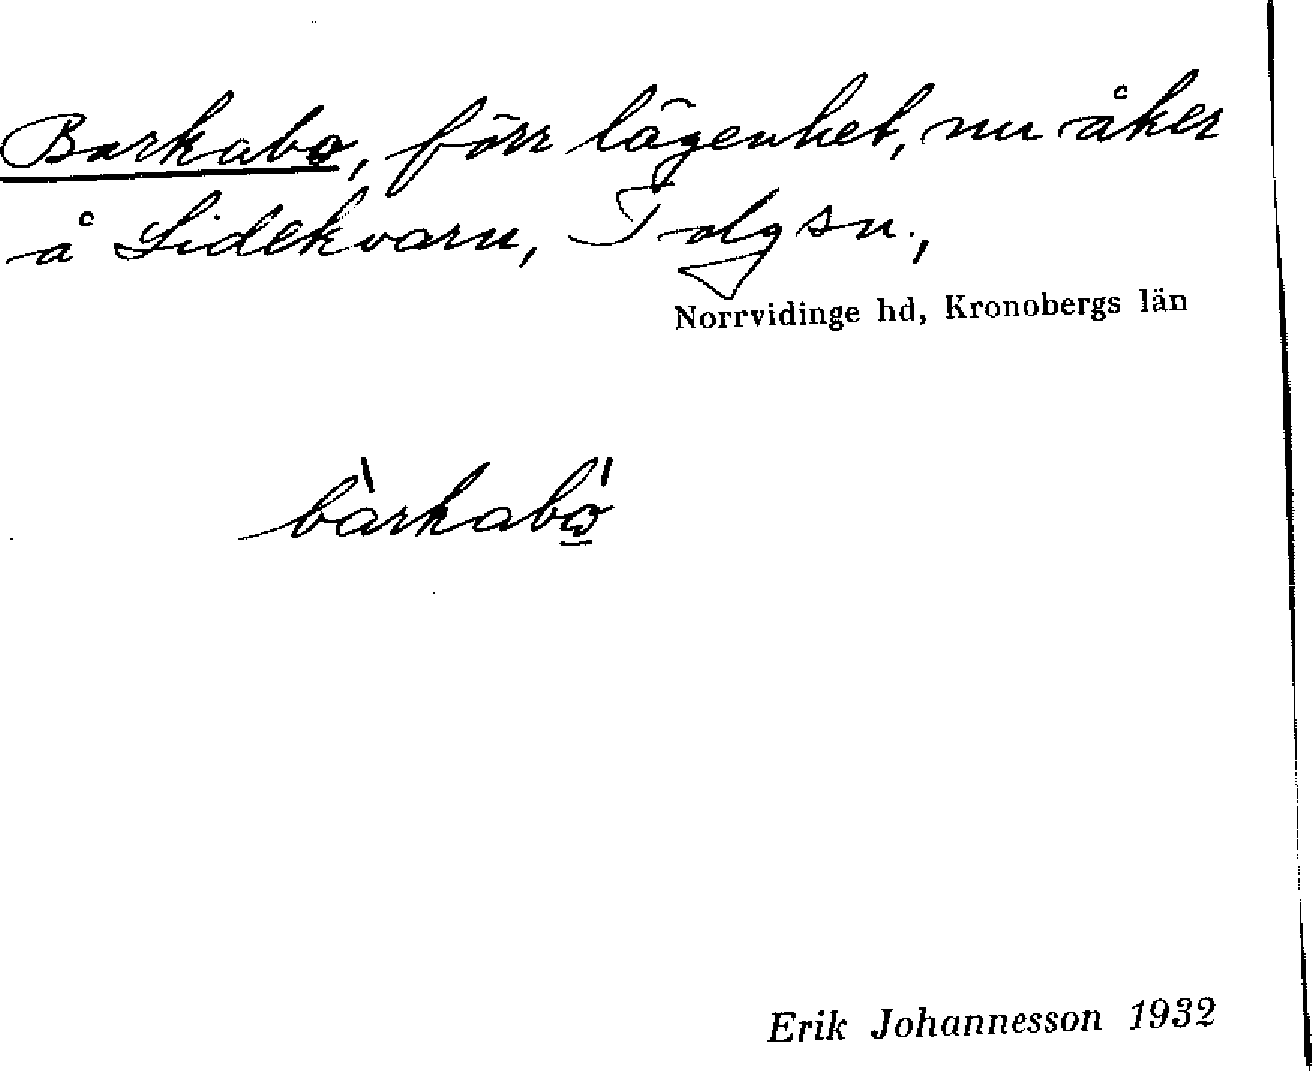 Barkabo, förr lägenhet, nu åker
å Lidekvarn, Tolg sn.,
Norrvidinge hd, Kronobergs län
bàrkabó̲
Erik Johannesson 1932